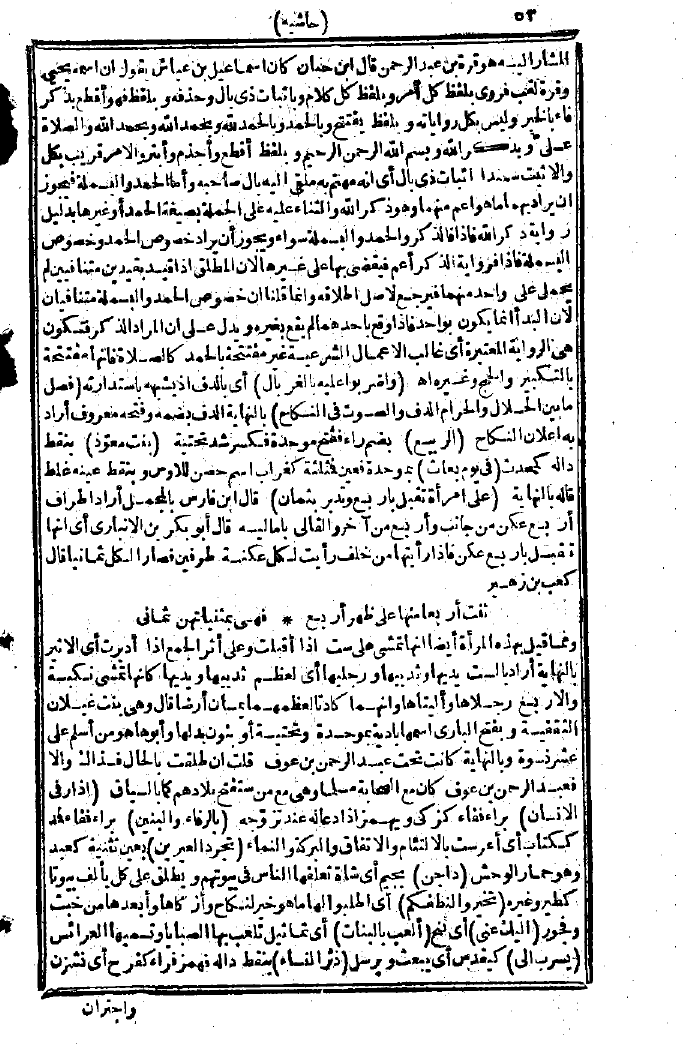 ٥٣ (حاشية)
المشار اليه هو قرة بن عبد الرحمن قال ابن حبان كان اسماعيل بن عياش يقول ان اسمه يحيى
وقرة لقب فروى بلفظ كل أمر وبلفظ كل كلام وباثبات ذي بال وحذفه وبلفظ فهو أقطع بذكر
فاء بالخبر وليس بكل رواياته وبلفظ يفتتح وبالحمد وبالحمد لله وبحمد الله وبحمد الله والصلاة
على وبذكر الله وبسم الله الرحمن الرحيم وبلفظ أقطع وأجذم وأبتر والامر قريب بكل
والاثبت سندا اثبات ذي بال أي انه مهتم به ملقى اليه بال صاحبه وأما الحمد والبسملة فيجوز
ان يراد بهما ما هو اعم منهما وهو ذكر الله والثناء عليه على الجملة بصيغة الحمد أو غيرها بدليل
رواية ذكر الله فاذا فالذكر والحمد والبسملة سواء ويجوز أن يراد خصوص الحمد وخصوص
البسملة فاذا فرواية الذكر أعم فيقضى بها على غيرها لان المطلق اذا قيد بقيدين متنافيين لم
يحمل على واحد منهما فيرجع لاصل اطلاقه وانما قلنا ان خصوص الحمد والبسملة متنافيان
لان البدأ انما يكون بواحد فاذا وقع باحدهما لم يقع بغيره ويدل على ان المراد الذكر فتكون
هي الرواية المعتبرة أي غالب الاعمال الشرعية غير مفتتحة بالحمد كالصلاة فانها مفتتحة
بالتكبير والحج وغيره اه (واضربوا عليه بالغربال) أي بالدف اذ يشبهه باستدارته (فصل
ما بين الحلال والحرام الدف والصوت في النكاح) بالنهاية الدف بضمه وفتحه معروف أراد
به اعلان النكاح (الربيع) بضم راء ففتح موحدة فكسر شد تحتية (بنت معوذ) بنقط
داله كمحدث (في يوم بعاث) بموحدة فعين فمثلثة كغراب اسم حصن للاوس وبنقط عينه غلط
قاله بالنهاية (على امرأة تقبل باربع وتدبر بثمان) قال ابن فارس بالمجمل أراد اطراف
أربع عكن من جانب وأربع من آخر والقالي باماليه قال أبو بكر بن الانباري أي انها
تقبل باربع عكن فاذا رأيتها من خلف رأيت لكل عكنة طرفين فصار الكل ثمانيا قال
كعب بن زهير
ثنت أربعا منها على ظهر أربع * فهى بمثنياتهن ثماني
ومما قيل بهذه المرأة أيضا انها تمشي على ست اذا أقبلت وعلى أربع اذا أدبرت أي الاثير
بالنهاية أراد بالست يديها وثدييها ورجليها أي لعظم ثدييها ويديها كانها تمشي
والاربع رجلاها وأليتاها وانهما كادتا لعظمهما يمسان أرضا قال وهي بنت غيلان
الثقفية وبفتح الباري اسمها بادية بموحدة وتحتية أو بنون بدلها وأبوها هو من أسلم على
عشر نسوة وبالنهاية كانت تحت عبد الرحمن بن عوف قلت ان طلقت بالحال فذاك والا
فعبد الرحمن بن عوف كان مع الصحابة مسلما وهي مع من ستفتح بلادهم كما بالسياق (اذا رفى
الانسان) براء ففاء كزكى ويهمز اذا دعا له عند تزوجه (بالرفاء والبنين) براء ففاء فمد
ككتاب أي أعرست بالالتئام والاتفاق والبركة والنماء (تجرد العيرين) بعين تثنية كعبد
وهو حمار الوحش (داجن) بجيم أي شاة تعلفها الناس في بيوتهم ويطلق على كل يألف بيوتا
كطير وغيره (تخيروا لنطفكم) أي اطلبوا لها ما هو خير لنكاح وأزكاها وأبعدها من خبث
وفجور (اليك عني) أي تنح (ألعب بالبنات) أي تماثيل تلعب بها الصبايا وتسميها العرائس
(يسرب الي) كيقدس أي يبعث ويرسل (ذئر النساء) بنقط داله فهمز فراء كفرح أي نشزن
واجترأن